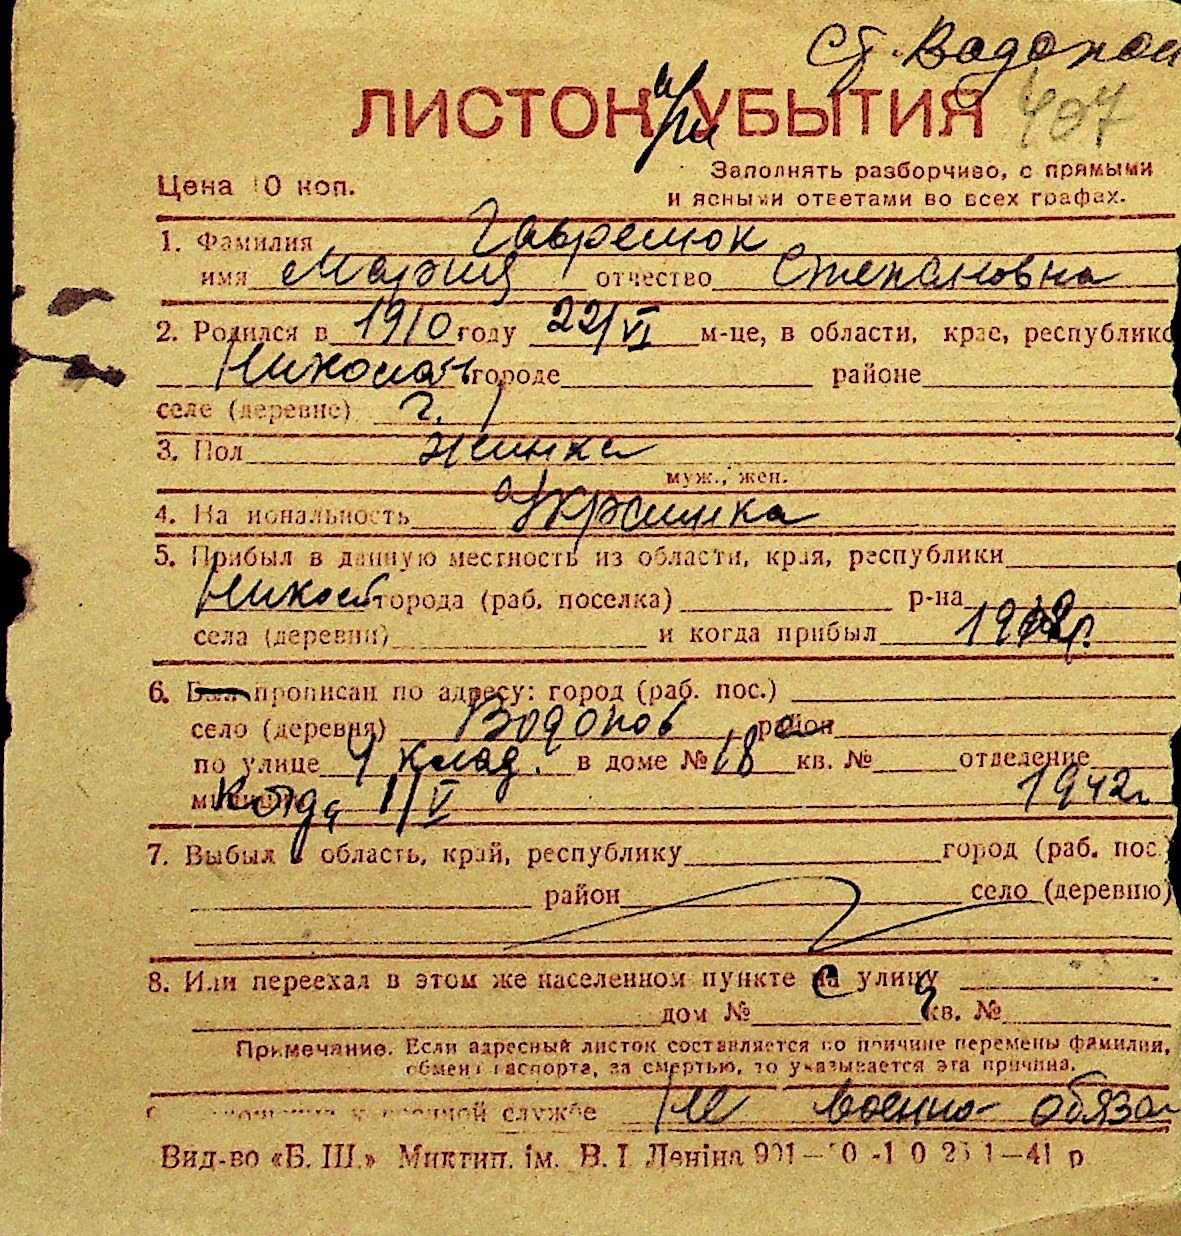 ст. Водопой
ЛИСТОК УБЫТИЯ 407
при
Цена 10 коп.
Заполнять разборчиво, с прямыми
и ясными ответами во всех графах.
1. Фамилия Гаврелюк
имя Мария отчество Степановна
2. Родился в 1910 году 22/VI м-це, в области, крае, республике
Николаев городе районе
селе (деревне) г.
3. Пол жинка
муж., жен.
4. Национальность Украинка
5. Прибыл в данную местность из области, края, республики
города (раб. поселка) р-на
села (деревни) и когда прибыл
6. прописан по адресу: город (раб. пос.)
село (деревня) Водопой район
по улице 4 клад. в доме № 18 кв. № отделение
когда 1/V 1942г
7. Выбыл в область, край, республику город (раб. пос.)
район село (деревню)
8. Или переехал в этом же населенном пункте на улицу
дом № кв. №
Примечание. Если адресный листок составляется по причине перемены фамилии,
обмена паспорта, за смертью, то указывается эта причина.
службе Не военно-обяза
Вид-во «Б. Ш.» Миктип. ім. В. І. Леніна